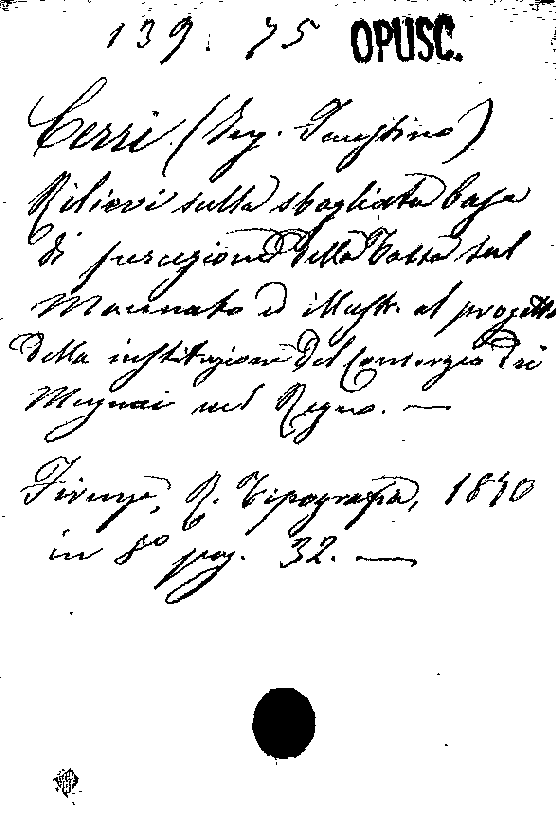 139. 75 OPUSC.
Cerri (Ing. Faustino)
Rilievi sulla sbagliata base
di percezione della Tassa sul
Macinato ed illustr. al progetto
della instituzione del Consorzio dei
Mugnai nel Regno. —
Firenze, R. Tipografia, 1870
in 8º pag. 32. —